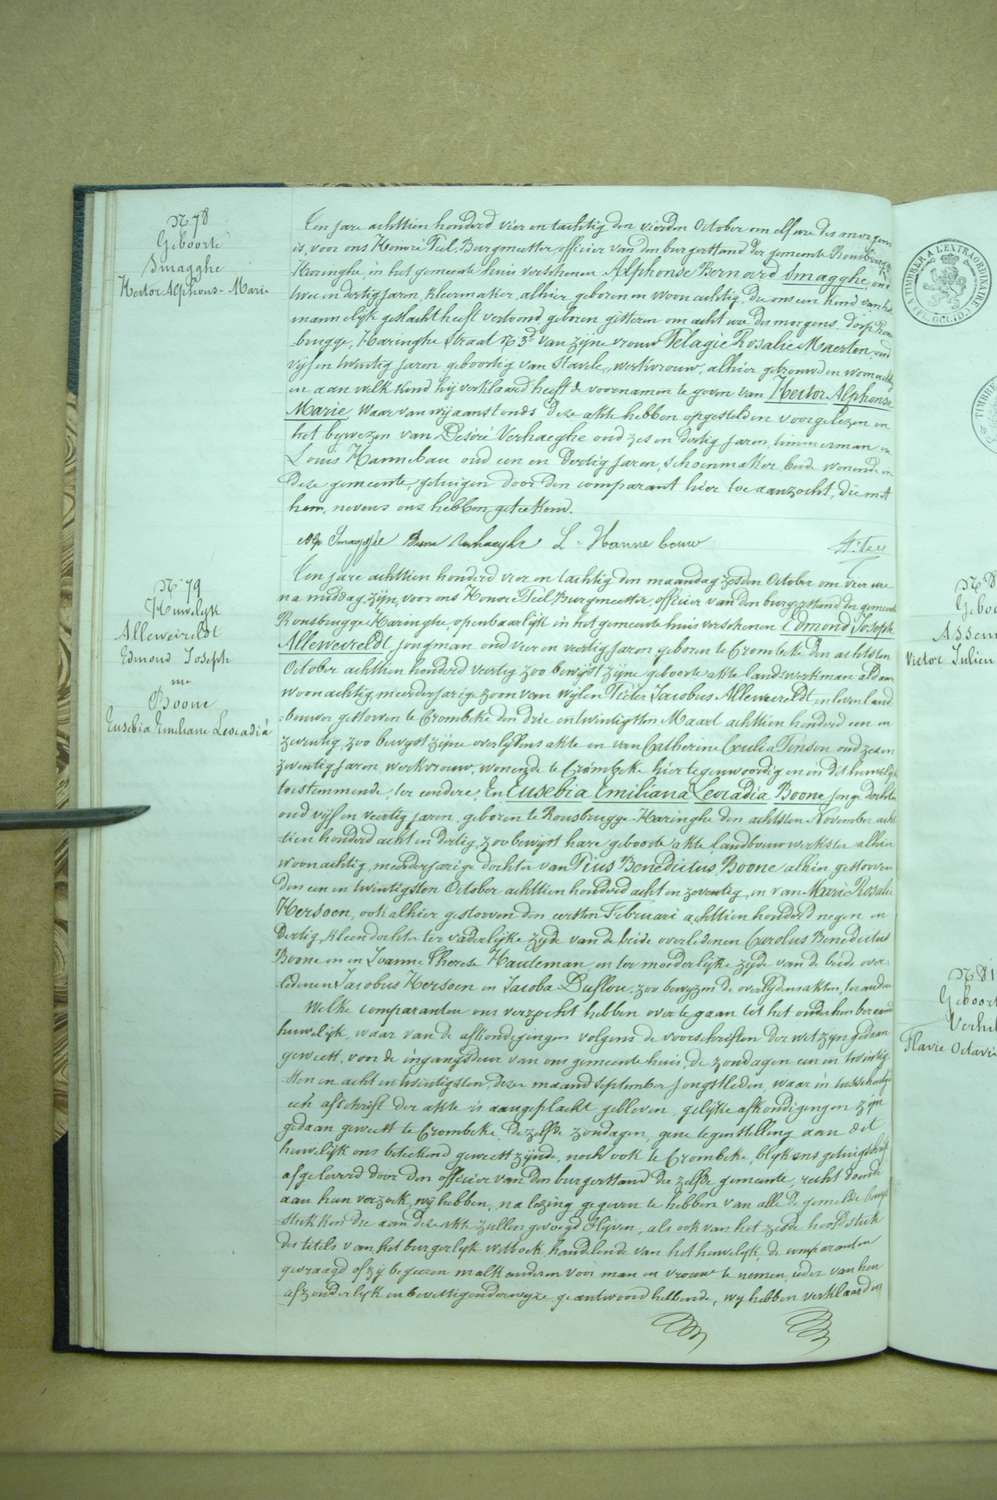 N 78
Geboorte
Smagghe
Hector Alphons- Marie
Ten jare achttien honderd vier en tachtig den vierden October om elf ure des morgens
is, voor ons Honoré Teil, Burgmeester officier van den burgerstand der gemeente Rousbrugge
Haringhe, in het gemeente huis verschenen Alphonse Bernard Smagghe, oud
twee en dertig jaren, kleermaker, alhier geboren en woonachtig, die ons een kind van het
mannelijk geslacht heeft vertoond geboren gisteren om acht ure des morgens, dorp Rous-
brugge, Haringhe Straat N 3 van zijne vrouw Pelagie Rosalie Maerten, oud
vijf en twintig jaren geboortig van Stavele, werkvrouw, alhier getrouwd en woonachtig
en aan welk kind hij verklaard heeft de voornamen te geven van Hector Alphonse
Marie, waar van wij aanstonds deze akte hebben opgesteld en voorgelezen in
het bijwezen van Désiré Verhaeghe oud zes en dertig jaren, timmerman en
Louis Hannebau oud een en dertig jaren, schoenmaker beide wonende in
deze gemeente, getuigen door den comparant hier toe aanzocht, die met
hem, nevens ons hebben geteekend.
Alp Smagghe Verhaeghe L. Hanne bouw
N 79
Huwelyk
Alleweireldt
Edmond Joseph
en
Boone
Eusebia Emiliane Leocadia
Ten jare achttien honderd vier en tachtig den maandag zesden October om vier ure
na middag, zijn voor ons Honoré Teil Burgmeester, officier van den burgerstand der gemeente
Rousbrugge Haringhe, openbaarlijk in het gemeente huis verschenen Edmond Joseph
Alleweireldt jongman oud vier en veertig jaren geboren te Crombeke den achtsten
October achttien honderd veertig zoo bewijst zijne geboorte akte landswerkman aldaar
woonachtig meerderjarige zoon van wijlen Pieter Jacobus Alleweireldt, in leven land-
bouwer gestorven te Crombeke den drie en twintigsten Maart achttien honderd een en
zeventig, zoo bewijst zijne overlijdens akte en van Catherine Cecilia Tinson oud zes en
zeventig jaren, werkvrouw, wonende te Crombeke hier tegenwoordig en in dit huwelijk
toestemmende, ter eendere, En Eusebia Emiliana Leocadia Boone jonge dochter
oud vijf en veertig jaren, geboren te Rousbrugge-Haringhe den achtsten November acht
tien honderd acht en dertig, zoo bewijst hare geboorte akte landbouwwerkster alhier
woonachtig, meerderjarige dochter van Pius Benedictus Boone alhier gestorven
den een en twintigsten October achttien honderd acht en zeventig, en van Marie Rosalie
Hersoen, ook alhier gestorven den eersten Februari achttien honderd negen en
dertig, kleindochter ter vaderlijke zijde van de beide overledenen Carolus Benedictus
Boone en en Joanna Therese Hauteman, en ter moederlijke zijde van de beide over-
ledenen Jacobus Hersoen en Jacoba Duflou, zoo bewijzen de overlijdensakten, ter andere
Welke comparanten ons verzocht hebben over te gaan tot het onder hen beraamd
huwelijk, waar van de afkondigingen volgens de voorschriften der wet zijn gedaan
geweest, voor de ingangsdeur van ons gemeente huis, de zondagen een en twintig-
sten en acht en twintigsten dezer maand September jongstleden, waar in tusschentijd
een afschrift der akte is aangeplakt gebleven, gelijke afkondigingen zijn
gedaan geweest te Crombeke, de zelfde zondagen, gene tegenstelling aan dit
huwelijk ons beteekend geweest zijnde, noch ook te Crombeke, blijkens getuigschrift
afgeleverd door den officier van den burgerstand der zelfde gemeente, recht doende
aan hun verzoek, wij hebben, na lezing gegeven te hebben van alle de gemelde bewijs
stukken die aan deze akte zullen gevoegd blijven, als ook van het zesde hoofdstuk
des titels van het burgerlijk wetboek handelende van het huwelijk, de comparanten
gevraagd of zij begeeren malkanderen voor man en vrouw te nemen, ieder van hen
afzonderlijk en bevestigenderwijze geantwoord hebbende, wij hebben verklaard in
TIMBRER A L'EXTRAORDINAIRE
Geboo
Assem
Victor Julien
N 81
Geboort
Verhe
Flavie Octavie